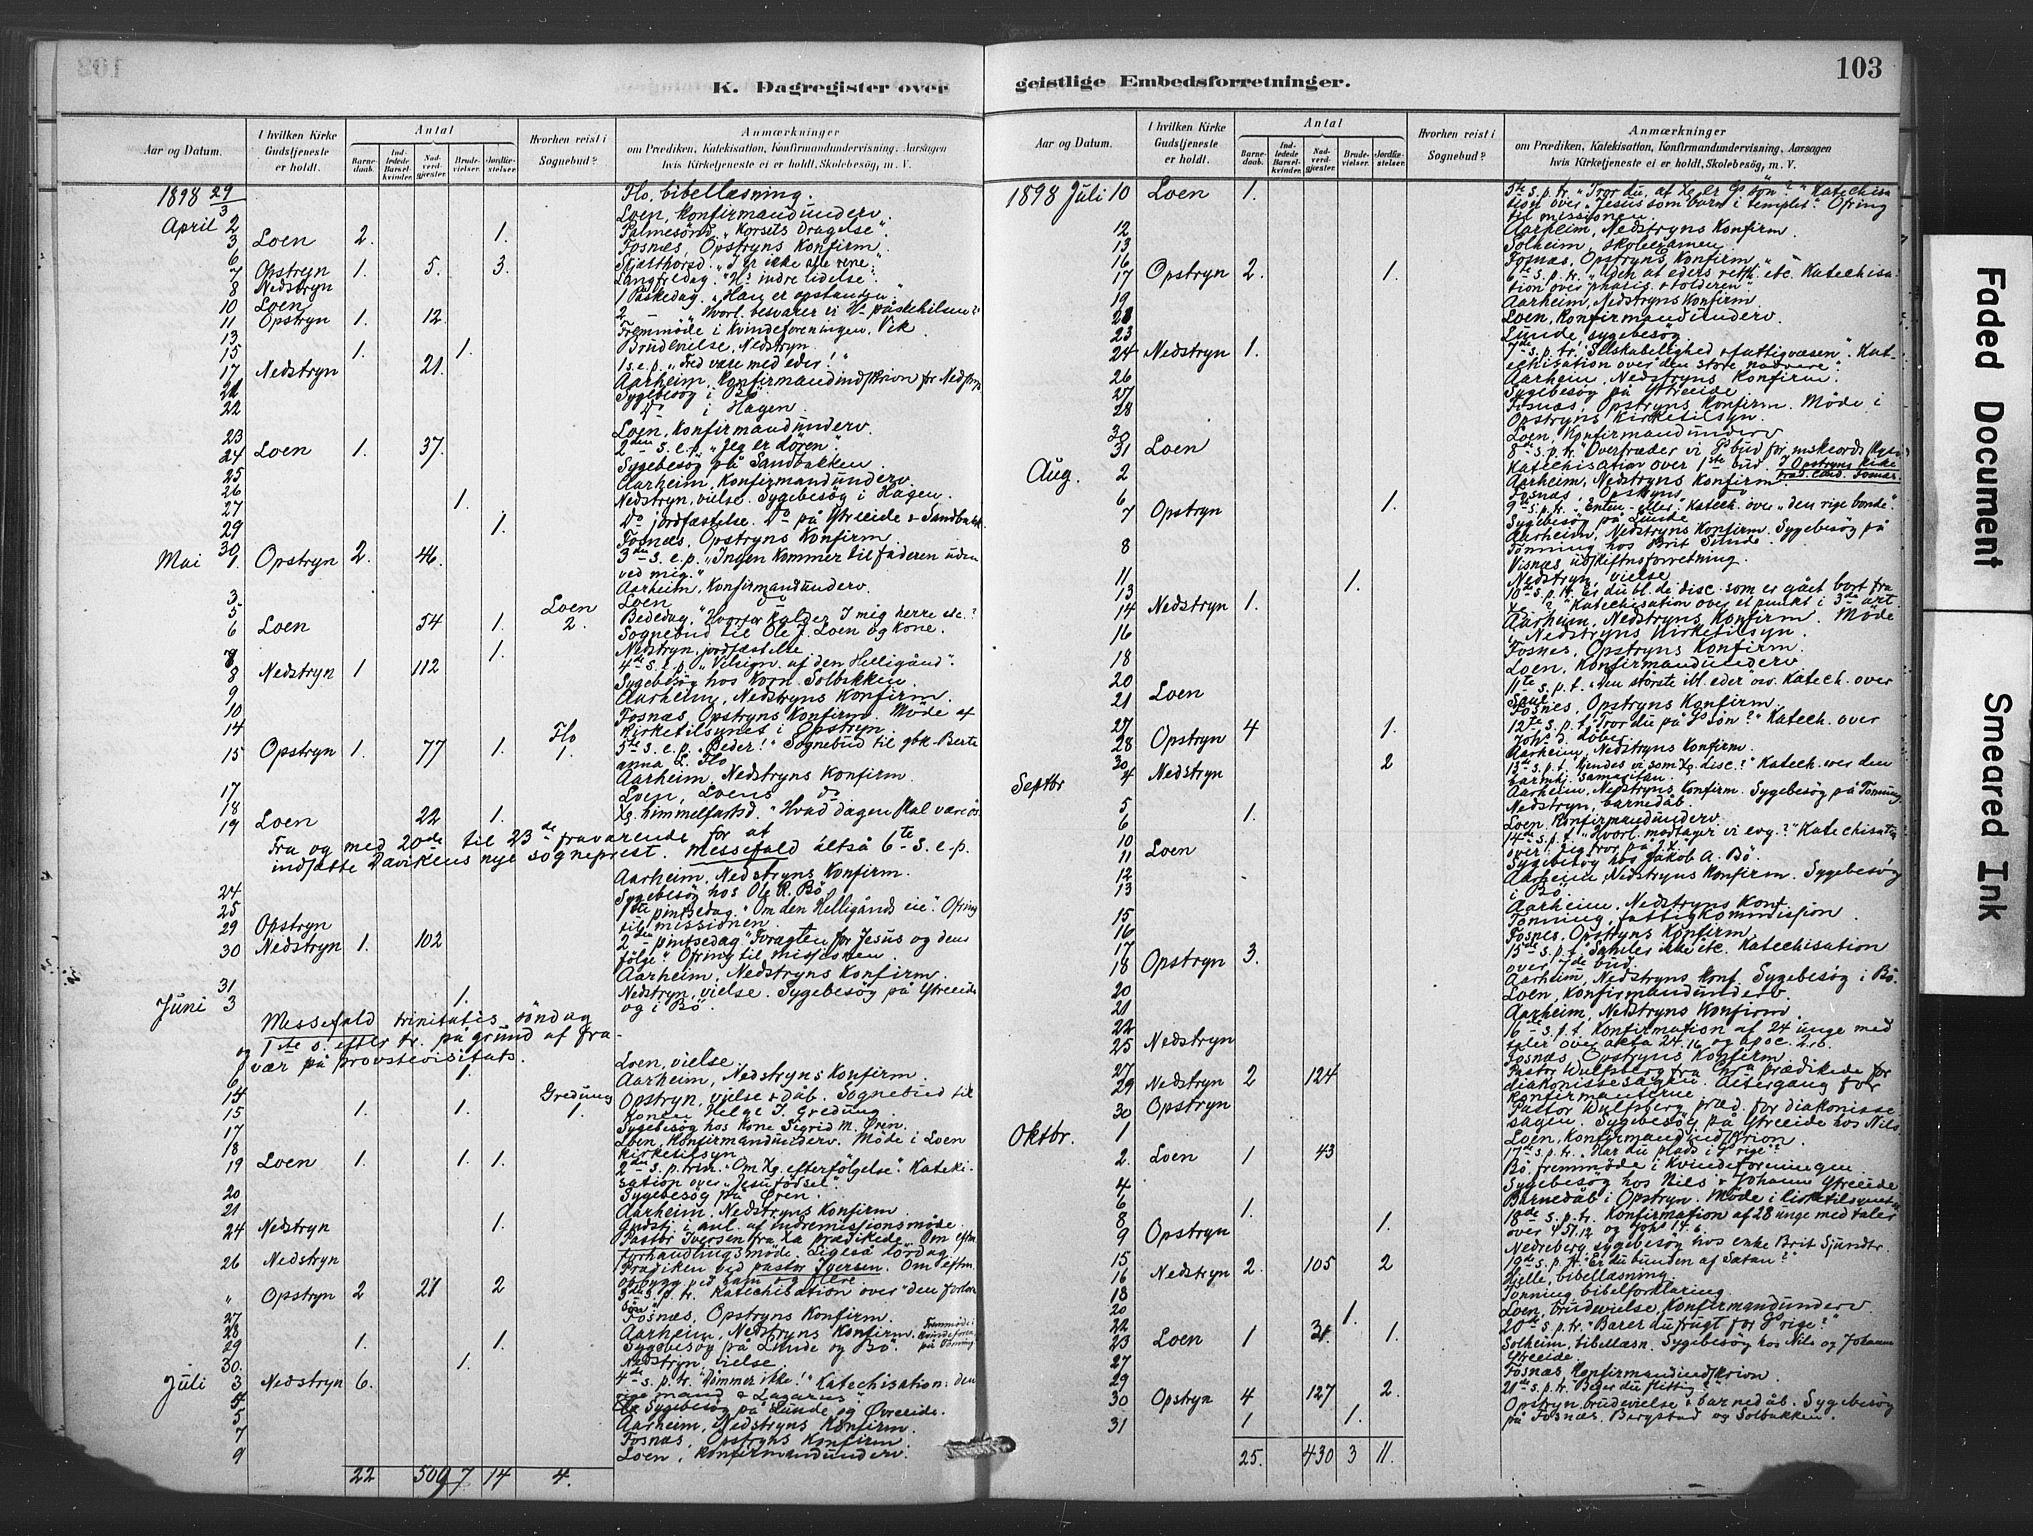 103
K. Dagregister over geistlige Embedsforretninger.
Aar og Datum.
I hvilken Kirke Gudstjeneste er holdt.
Antal
Barnedaab.
Indledede Barselkvinder.
Nadverdgjester.
Brudevielser.
Jordfæstelser.
Hvorhen reist i Sognebud?
Anmærkninger
om Prædiken, Katekisation, Konfirmandundervisning, Aarsagen
hvis Kirketjeneste ei er holdt, Skolebesøg, m. V.
1898 29/3 Flo, bibellæsning.
April 2 Loen, Konfirmandunderv.
3 Loen 2. 1. Palmesønd. "Korsets Dragelse".
6 Fosnæs, Opstryns Konfirm.
7 Opstryn 1. 5. 3. Skjærthorsd. "I er ikke alle rene".
8 Nedstryn Langfredag. indre lidelse".
10 Loen 1 Påskedag. "Han er opstanden".
11 Opstryn 1. 12. 2 - "Hvorl. besvarer vi påskehilsen?"
13 Fremmøde i Kvindeforeningen, Vik
15 1. 1. Brudevielse, Nedstryn.
17 Nedstryn 21. 1 s. e. p. "Fred være med eder!"
21 Aarheim, Konfirmandindskrivn for Nedstryn
22 Sygebesøg i Bø
Do i Hagen.
23 Loen, Konfirmandunderv.
24 Loen 1. 37. 2den s. e. p. "Jeg er døren".
25 Sygebesøg på Sandbakken.
26 Aarheim, Konfirmandunderv.
27 1. Nedstryn, vielse. Sygebesøg i Hagen.
29 1. Do jordfæstelse. Do på Ytreeide & Sandbakk.
30 Fosnæs, Opstryns Konfirm.
Mai 1. Opstryn 2. 46. 3die s. e. p. "Ingen kommer til faderen uden
ved mig."
3 Aarheim, Konfirmandunderv.
5 Loen do
6 Loen 54 1. Loen 2. Bededag, "Hvorfor kalder I mig herre etc.?
Sognebud til Ole J. Loen og Kone.
7 1. Nedstryn, jordfæstelse
8 Nedstryn 1 112 4de s. e. p. "Velsign. af den Helligånd".
9 Sygebesøg hos Korn. Solbakken.
10 Aarheim, Nedstryns Konfirm.
14 Fosnæs, Opstryns Konfirm. Møde af
Kirketilsynet i Opstryn.
15 Opstryn 1. 77 1. Flo 1. 5te s. e. p. "Beder!" Sognebud til gbk. Berte
anna E. Flo
17 Aarheim, Nedstryns Konfirm.
18 Loen, Loens do
19 Loen 22 1. Xi himmelfartsd. "Hvad dagen skal være os
Fra og med 20de til 23de fraværende for at
indsætte Davikens nye sogneprest. Messefald altså 6te s. e. p.
24 Aarheim, Nedstryns Konfirm.
25 Sygebesøg hos Ole R. Bø
29 Opstryn 1ste pintsedag. "Om den Helligånds eie". Ofring
til missionen.
30 Nedstryn 1. 102 2den pintsedag "Foragten for Jesus og dens
følge". Ofring til missionen.
31 Aarheim, Nedstryns Konfirm.
Juni 3 1. Nedstryn, vielse. Sygebesøg på Ytreeide
og i Bø.
Messefald trinitatis søndag
og 1ste s. efter tr. på grund af fra-
vær på provstevisitats.
6 1. Loen, vielse.
14 Aarheim, Nedstryns Konfirm.
15 1. 1. Gredung 1. Opstryn, vielse & dåb. Sognebud til
Konen Helge J. Gredung.
17 Sygebesøg hos Kone Sigrid M. Øren.
18 Loen, Konfirmandunderv. Møde i Loen
kirketilsyn
19 Loen 1. 1. 1. 2den s. p. trin. "Om Xi efterfølgelse". Kateki-
sation over "Jesu fødsel".
20 Sygebesøg på Øren.
21 Aarheim, Nedstryns Konfirm.
24 Nedstryn 1. Gudstj. i anl. af indremissionsmøde.
Pastor Iversen fra Xa prædikede. Om eftm.
forhandlingsmøde. Ligeså lørdag.
26 Nedstryn Prædiken ved pastor Iversen. Om eftm.
opbygg. ved ham og flere.
" Opstryn 2 28 2 3die s. p. tr. Katechisation over "den forlorne
søn"
27 Fosnæs, Opstryns Konfirm.
28 Aarheim, Nedstryns Konfirm. Fremmøde i kvindeforen. på Tonning
29 1. 1. Sygebesøg på Lunde og Bø.
30. 1. Nedstryn, vielse.
Juli 3 Nedstryn 6. 4de s. p. tr. "Dømmer ikke!" Katechisation: den
rige mand & Lazarus
4 Sygebesøg på Lunde og Øvreeide.
5 Aarheim, Nedstryns Konfirm.
7 Fosnæs, Opstryns Konfirm
9 Loen, Konfirmandunderv.
22 509 7 14 4.
Aar og Datum.
I hvilken Kirke Gudstjeneste er holdt.
Antal
Barnedaab.
Indledede Barselkvinder.
Nadverdgjester.
Brudevielser.
Jordfæstelser.
Hvorhen reist i Sognebud?
Anmærkninger
om Prædiken, Katekisation, Konfirmandundervisning, Aarsagen
hvis Kirketjeneste ei er holdt, Skolebesøg, m. V.
1898 Juli 10 Loen 1. 5te s. p. tr. "Tror du, at Xs er Gs søn?" Katechisa
tion over "Jesus som barn i templet". Ofring
til missionen.
12 Aarheim, Nedstryns Konfirm.
13 Solheim, skoleexamen.
16 Fosnæs, Opstryns Konfirm
17 Opstryn 2. 1. 6te s. p. tr. "Uden at eders retf. etc. Katechisa-
tion over "pharis. & tolderen".
19 Aarheim, Nedstryns Konfirm.
21 Loen, Konfirmandunderv.
23 Lunde, sygebesøg
24 Nedstryn 1. 7de s. p. tr. "Selskabelighed & fattigvæsen". Kat-
echisation over "den store nadvere".
26 Aarheim, Nedstryns Konfirm.
27 Sygebesøg på Ytreeide
28 Fosnæs, Opstryns Konfirm. Møde i
Opstryns Kirketilsyn.
30 Loen, Konfirmandunderv
31 Loen 8de s. p. tr. "Overtræder vi Gs bud for
Katechisation over 1ste bud. I Opstryns kirke
præd. cand. Fosnæs.
Aug. 2 Aarheim, Nedstryns Konfirm
6 Fosnæs, Opstryns do
7 Opstryn 1. 9de s. p. tr. "Enten - eller". Katech. over "den rige bonde".
Sygebesøg på Lunde
8 Aarheim, Nedstryns Konfirm. Sygebesøg på
Tonning hos Brit Sunde.
11 Visnæs udskiftnsforretning.
13 1. Nedstryn, vielse
14 Nedstryn 1. 10de s. p. tr. er du bl. de disc. som er gået bort fra
Xs?" Katechisation over et punkt i 3die art.
16 Aarheim, Nedstryns Konfirm. Møde
i Nedstryns Kirketilsyn.
18 Fosnes, Opstryns Konfirm.
20 Loen, Konfirmandunderv
21 Loen 11te s. p. t. "Den største ibl. eder osv. Katech. over
Saul
27 Fosnes, Opstryns Konfirm.
28 Opstryn 4 1. 12te s. p. t. "Tror du på Gs søn?" Katech. over
Johs d. døber
30 Aarheim, Nedstryns Konfirm.
Septbr 4 Nedstryn 2 13de s. p. t. "Kjendes vi som Xi disc.?" Katech. over den
barmhj. samaritan.
5 Aarheim, Nedstryns Konfirm. Sygebesøg på Tonning
6 1. Nedstryn, barnedåb.
10 Loen Konfirmandunderv.
11 Loen 14de s. p. t. "Hvorl. modtager vi evg.?" Katechisation
over: "Jeg tror på J X".
12 Sygebesøg hos Jakob A. Bø.
13 Aarheim, Nedstryns Konfirm. Sygebesøg
i Bø
15 Aarheim, Nedstryns Konf.
16 Tonning, fattigkommission.
17 Fosnes, Opstryns Konfirm
18 Opstryn 3. 15de s. p. t. Samles ikke etc. Katechisation
over 7de bud.
20 Aarheim, Nedstryns Konf. Sygebesøg i Bø.
21 Loen, Konfirmandunderv.
22 Aarheim, Nedstryns Konfirm.
25 Nedstryn 16de s. p. t. Konfirmation af 24 unge med
taler over akta 24.16 og apoc. 2.16.
27 Fosnæs, Opstryns Konfirm.
29 Nedstryn 2 124 Pastor Wulfsberg fra Xa prædikede for
diakonissesagen. Altergang for
konfirmanterne
30 Opstryn Pastor Wulfsberg præd. for diakonisse
sagen. Sygebesøg på Ytreeide hos Nils.
Oktbr. 1 Loen, Konfirmandindskrivn.
2. Loen 1 43 17de s. p. tr. "Har du plads i Gs rige?"
4 Bø. fremmøde i Kvindeforeningen.
6 Sygebesøg hos Nils & Johanne Ytreeide
8 1. Barnedåb i Opstryn. Møde i kirketilsynet
9 Opstryn 1. 18de s. p. tr. Konfirmation af 28 unge med taler
over ψ 51.12 og Johs 14.6.
15 Nedreberg sygebesøg hos enke Brit Sjundtr.
16 Nedstryn 2. 105 2 19de s. p. tr. "Er du bunden af Satan?"
18 Hjelle, bibellæsning
20 Tonning bibelforklaring
22 1. Loen, brudevielse, Konfirmandunderv
23 Loen 1 31 1. 20de s. p. tr. "Bærer du frugt for Gs rige?"
27 Solheim, bibellæsn. Sygebesøg hos Nils og Johanne
Ytreeide.
29 Fosnæs, Konfirmandindskrivn
30 Opstryn 4 127 2. 21de s. p. tr. "Beder du flittig?"
31 1 1. Opstryn, brudevielse & barnedåb. Sygebesøg
på Fosnæs, Bergstad og Solbakken.
25. 430 3 11.
Faded Document
Smeared Ink